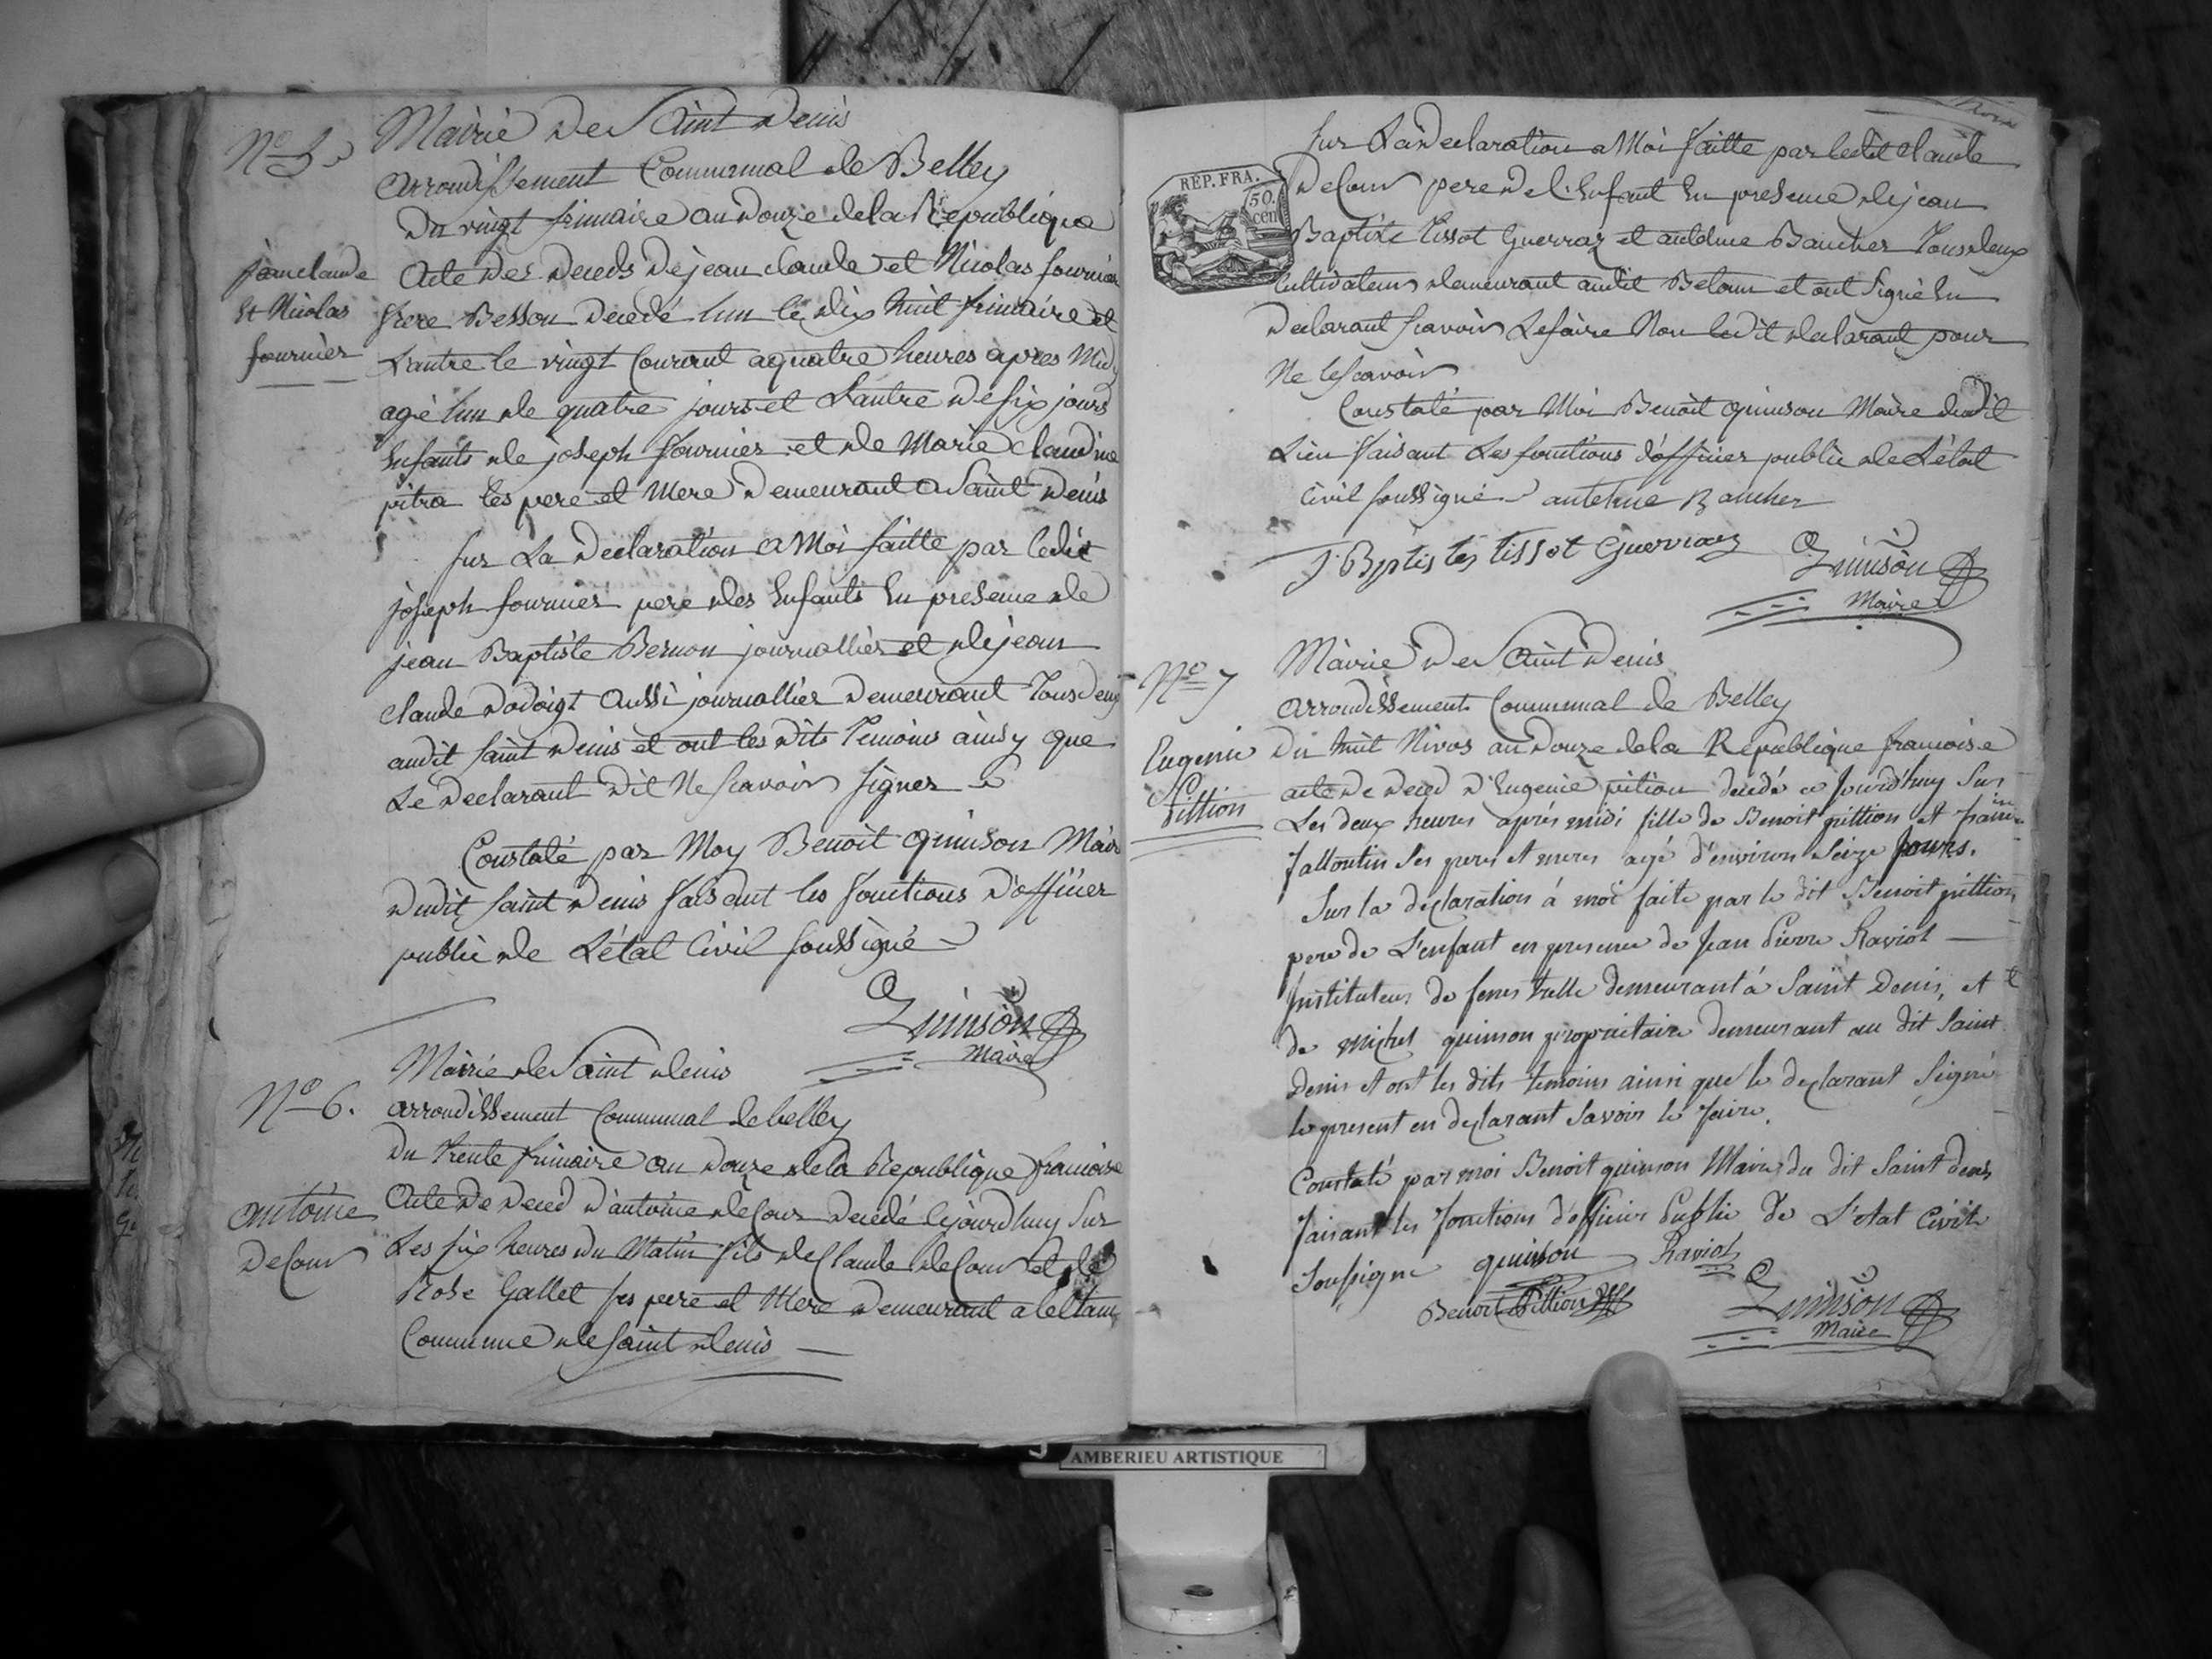 N° 5
Mairie de Saint Denis
arrondissement Communal de Belley
Du vingt frimaire an Douze de la Republique
jean claude
et Nicolas
fournier
Acte des deceds de jean claude et Nicolas fournier
frere Besson decedé lun le dix huit frimaire et
Lautre le vingt Courant a quatre heures apres Midy
agé lun de quatre jours et Lautre de six jours
Enfants de joseph fournier et de Marie Claudine
pitra les pere et Mere Demeurant a Saint Denis
sur La declaration a Moi faitte par ledit
joseph fournier pere des Enfants En presence de
jean Baptiste Bernon journallier et de jean
claude dodoigt Aussi journallier Demeurant Tous deux
audit saint Denis et ont les dits Temoins ainsy que
Le Declarant Dit Ne scavoir signer
Constalé par Moy Benoit quinson Maire
Dudit saint Denis faisant les fonctions D'officier
public de L'état Civil soussigné
Quinson
Maire
N° 6.
Mairie de Saint Denis
arrondissement Communal de belley
Du trente frimaire an Douze de la Republique francoise
antoine
Decour
Acte De Deced D'antoine deCour Decedé cejourdhuy sur
Les six heures du Matin fils de Claude deCour et de
Rose Gallet ses pere et Mere Demeurant a
Commune de saint Denis
REP. FRA.
50.
cen
sur La Declaration a Moi faitte par ledit Claude
DeCour pere de l'Enfant En presence de jean
Baptiste tissot Guerraz et antelme Bancher Tous deux
Cultivateurs demeurant audit et ont signé En
Declarant scavoir Lefaire Non ledit declarant pour
Ne lescavoir
Constalé par Moi Benoit quinson Maire dudit
Lieu faisant Les fonctions d'officier public de L'état
Civil soussigné antelme Bancher
J. Bptiste tissot Guerraz Quinson
Maire
N° 7
Mairie de Saint Denis
arrondissement Communal de Belley
Eugenie
Pittion
Du huit Nivos an Douze de la Republique francoise
acte De Deced D'Eugenie pition decédé ce jourd'huy sur
Les deux heures aprés midi fille de Benoit pittion et
ses peres et meres agé d'environ seize jours.
Sur la declaration á moi faite par le dit Benoit pittion,
pere de L'enfant en presence de Jean Pierre Raviot
Instituteur de demeurant á Saint Denis, et
de michel quinson propriétaire demeurant au dit Saint
Denis et ont les dits temoins ainsi que le declarant signé
le present en declarant savoir le faire.
Constaté par moi Benoit quinson Maire du dit Saint denis
faisant les fonctions d'officier Public de L'etat Civil
soussigne quinson Raviot
Benoit Pittion Quinson
Maire
AMBERIEU ARTISTIQUE